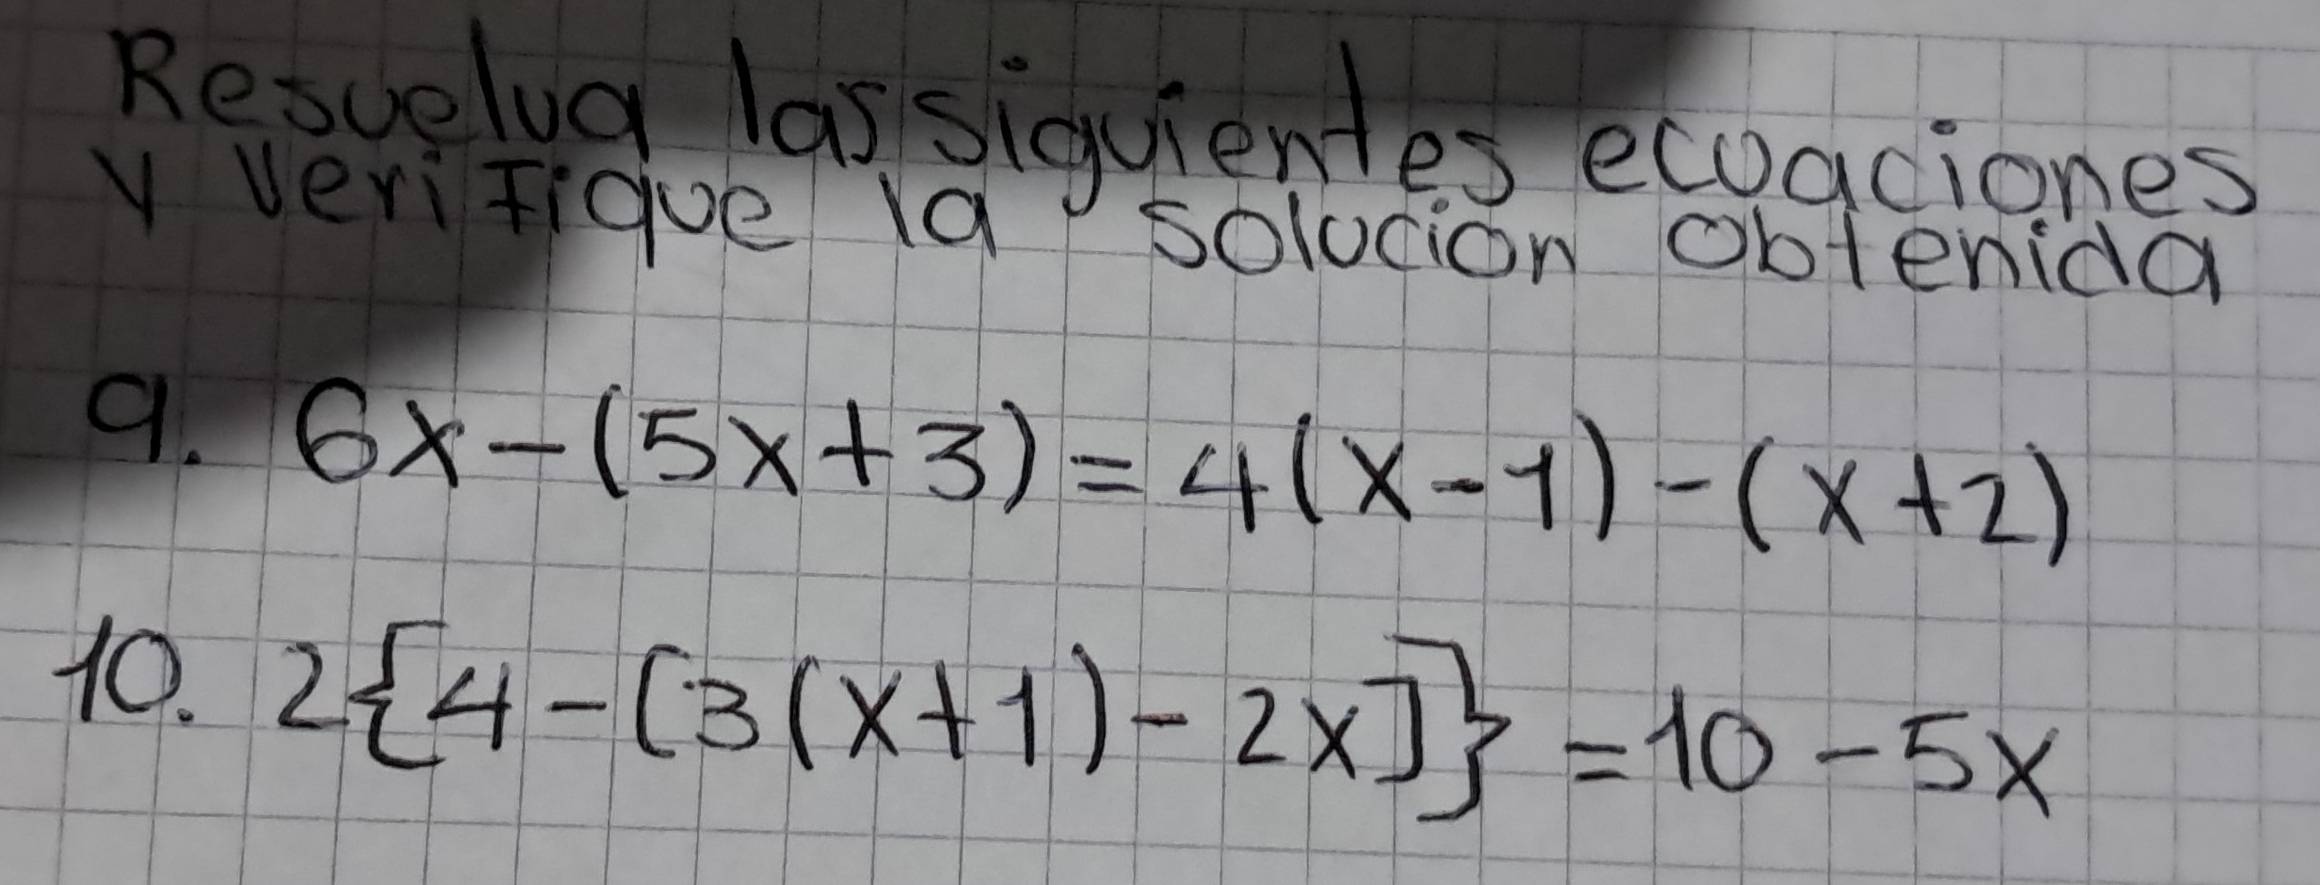 Resuelva las siguientes ecuaciones
y verifique la solución obtenida
9. 6x-(5x+3)=4(x-1)-(x+2)
10. 2{4-[3(x+1)-2x]}=10-5x